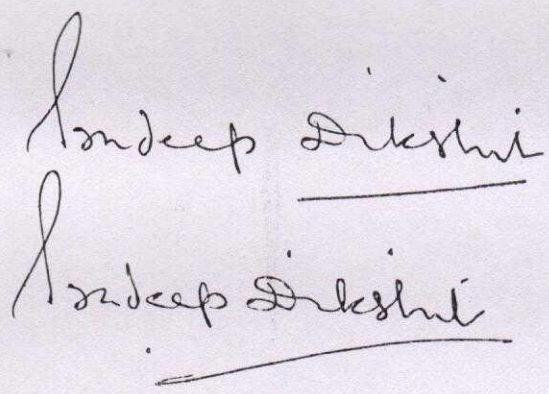 Sandeep Dikshit
Sandeep Dikshit